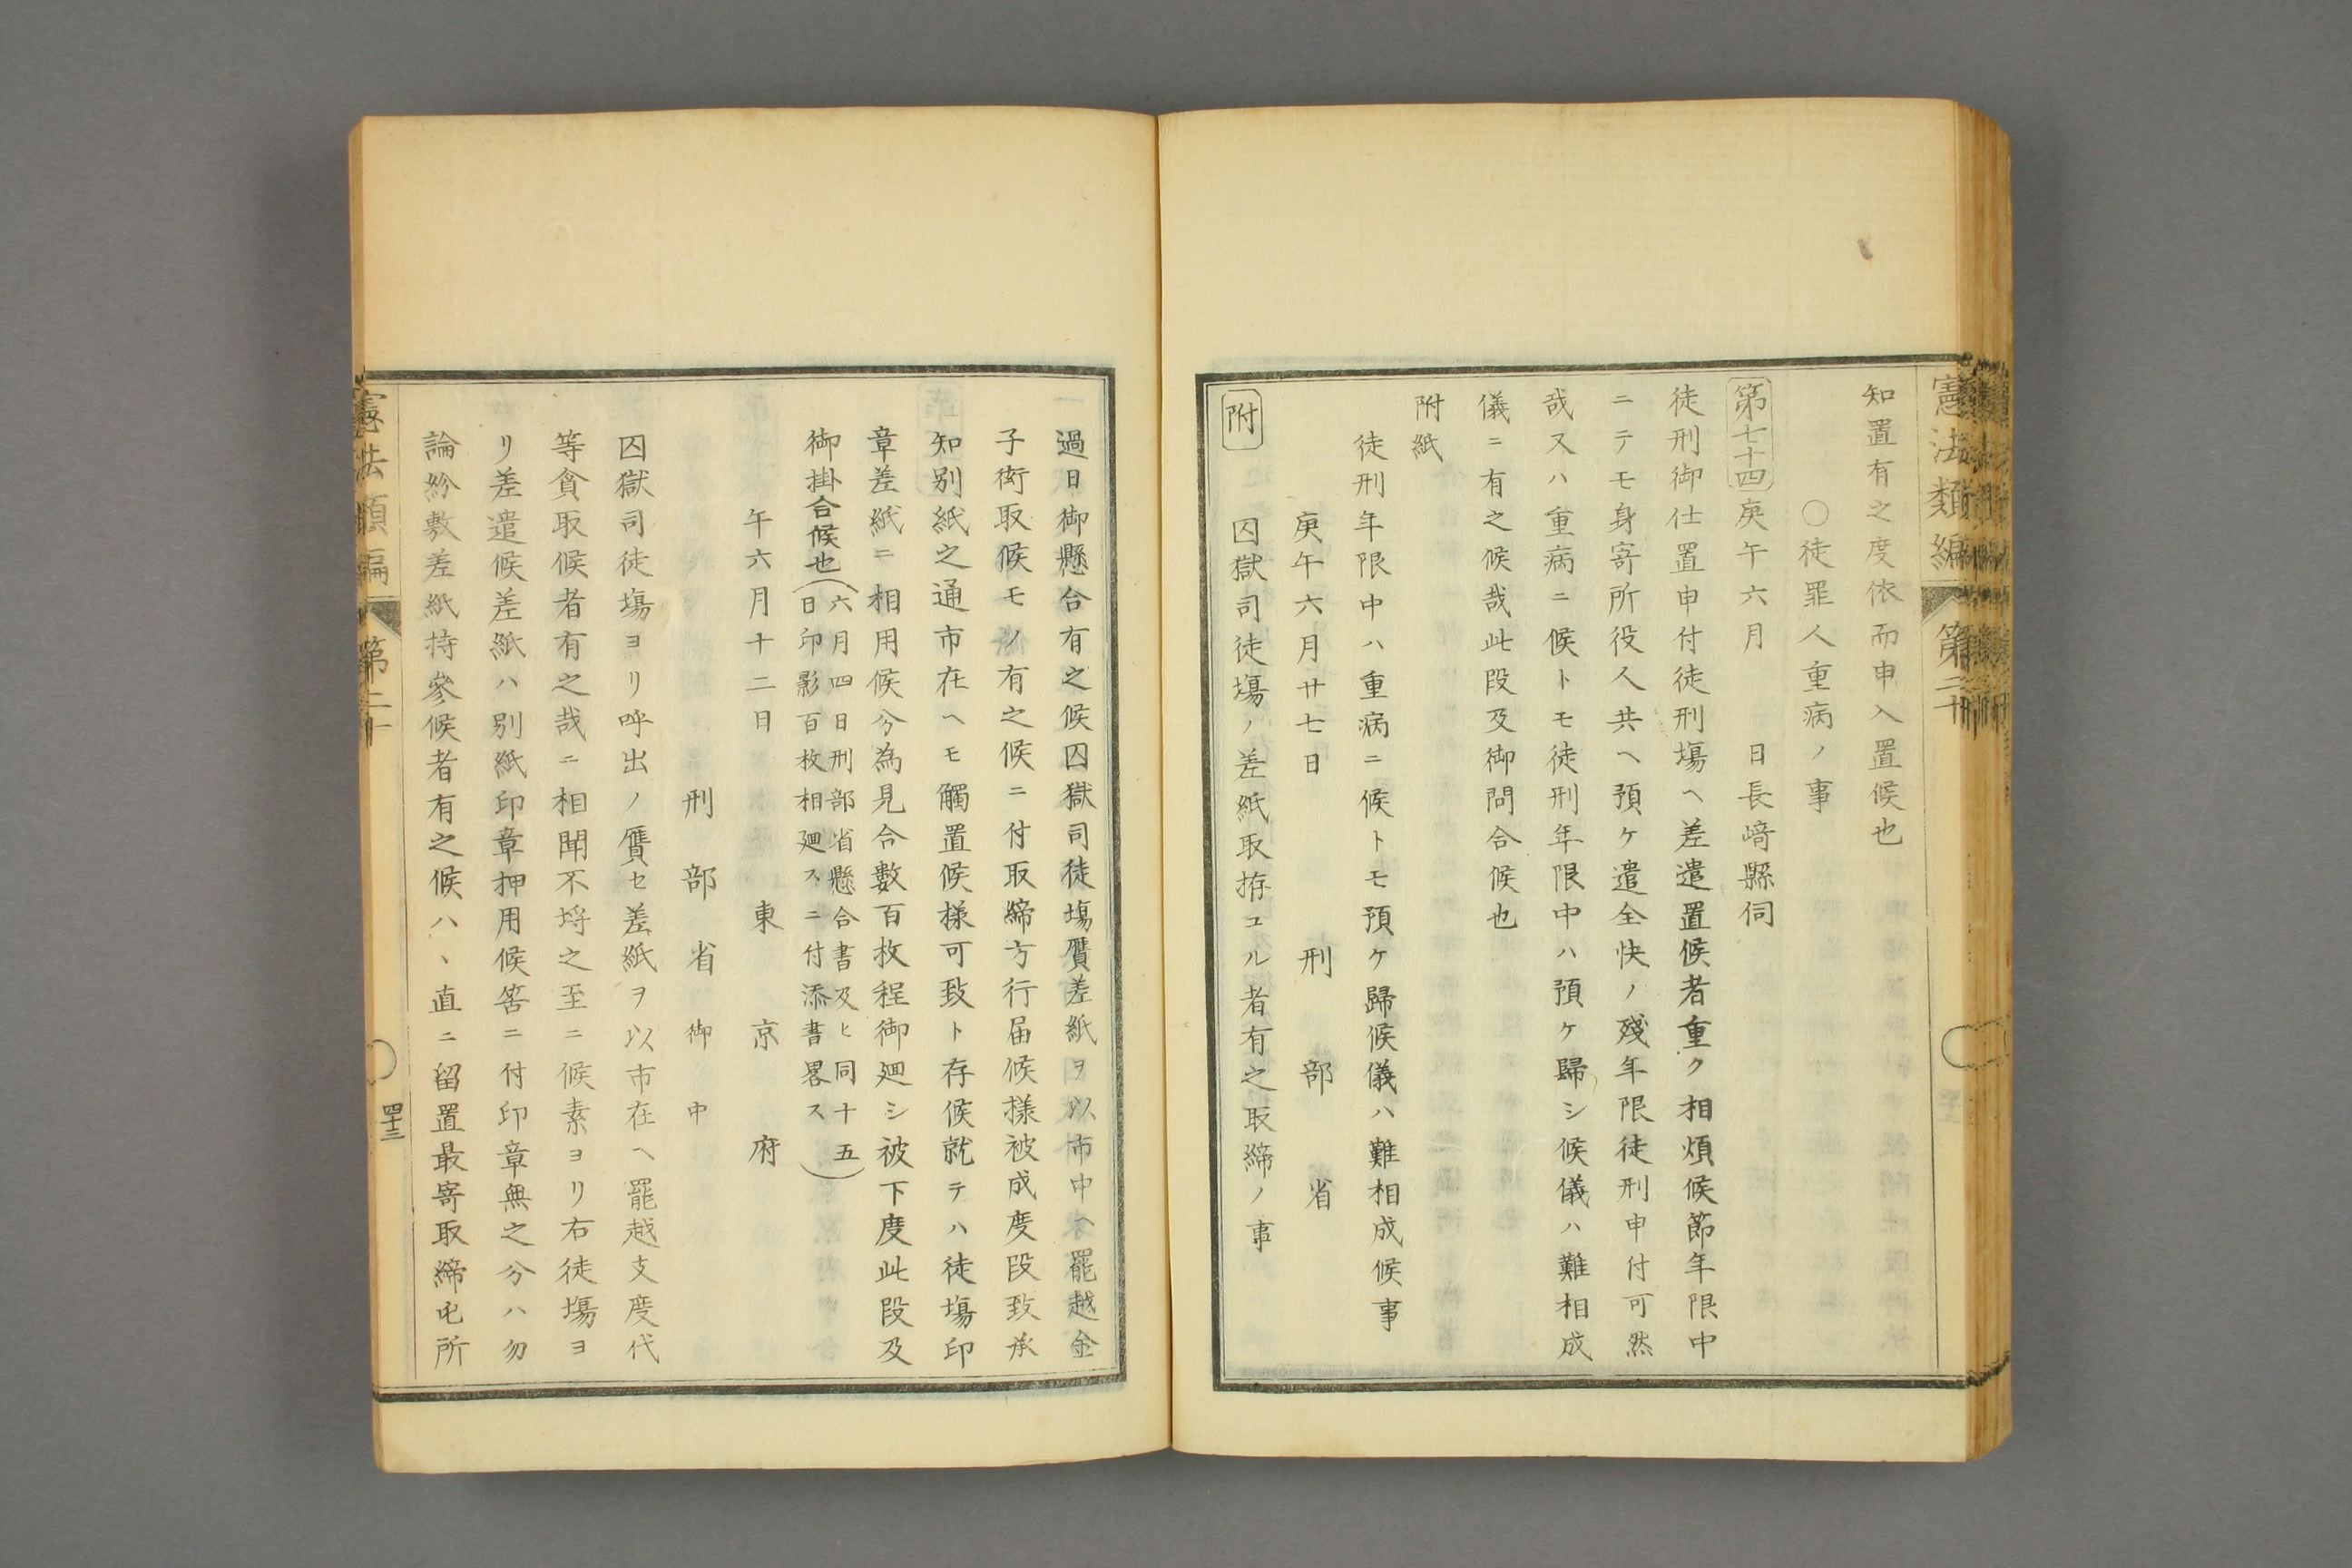 憲法類編 第二十
知置有之度依而申入置候也
○徒罪人重病ノ事
第七十四 庚午六月 日長﨑縣伺
徒刑御仕置申付徒刑塲ヘ差遣置候者重ク相煩候節年限中
ニテモ身寄所役人共ヘ預ケ遣全快ノ殘年限徒刑申付可然
哉又ハ重病ニ候トモ徒刑年限中ハ預ケ歸シ候儀ハ難相成
儀ニ有之候哉此段及御問合候也
附紙
徒刑年限中ハ重病ニ候トモ預ケ歸候儀ハ難相成候事
庚午六月廿七日 刑部省
附 囚獄司徒塲ノ差紙取拵ユル者有之取締ノ事
過日御懸合有之候囚獄司徒塲贋差紙ヲ以市中ヘ罷越金
子衒取候モノ有之候ニ付取締方行届候樣被成度段致承
知別紙之通市在ヘモ觸置候樣可致ト存候就テハ徒塲印
章差紙ニ相用候分為見合數百枚程御廻シ被下度此段及
御掛合候也(六月四日刑部省懸合書及ヒ同十五
日印影百枚相廻スニ付添書畧ス)
午六月十二日 東京府
刑部省御中
囚獄司徒塲ヨリ呼出ノ贋セ差紙ヲ以市在ヘ罷越支度代
等貪取候者有之哉ニ相聞不埒之至ニ候素ヨリ右徒塲ヨ
リ差遣候差紙ハ別紙印章押用候筈ニ付印章無之分ハ勿
論紛敷差紙持參候者有之候ハヽ直ニ留置最寄取締屯所
憲法類編 第二十
四十三